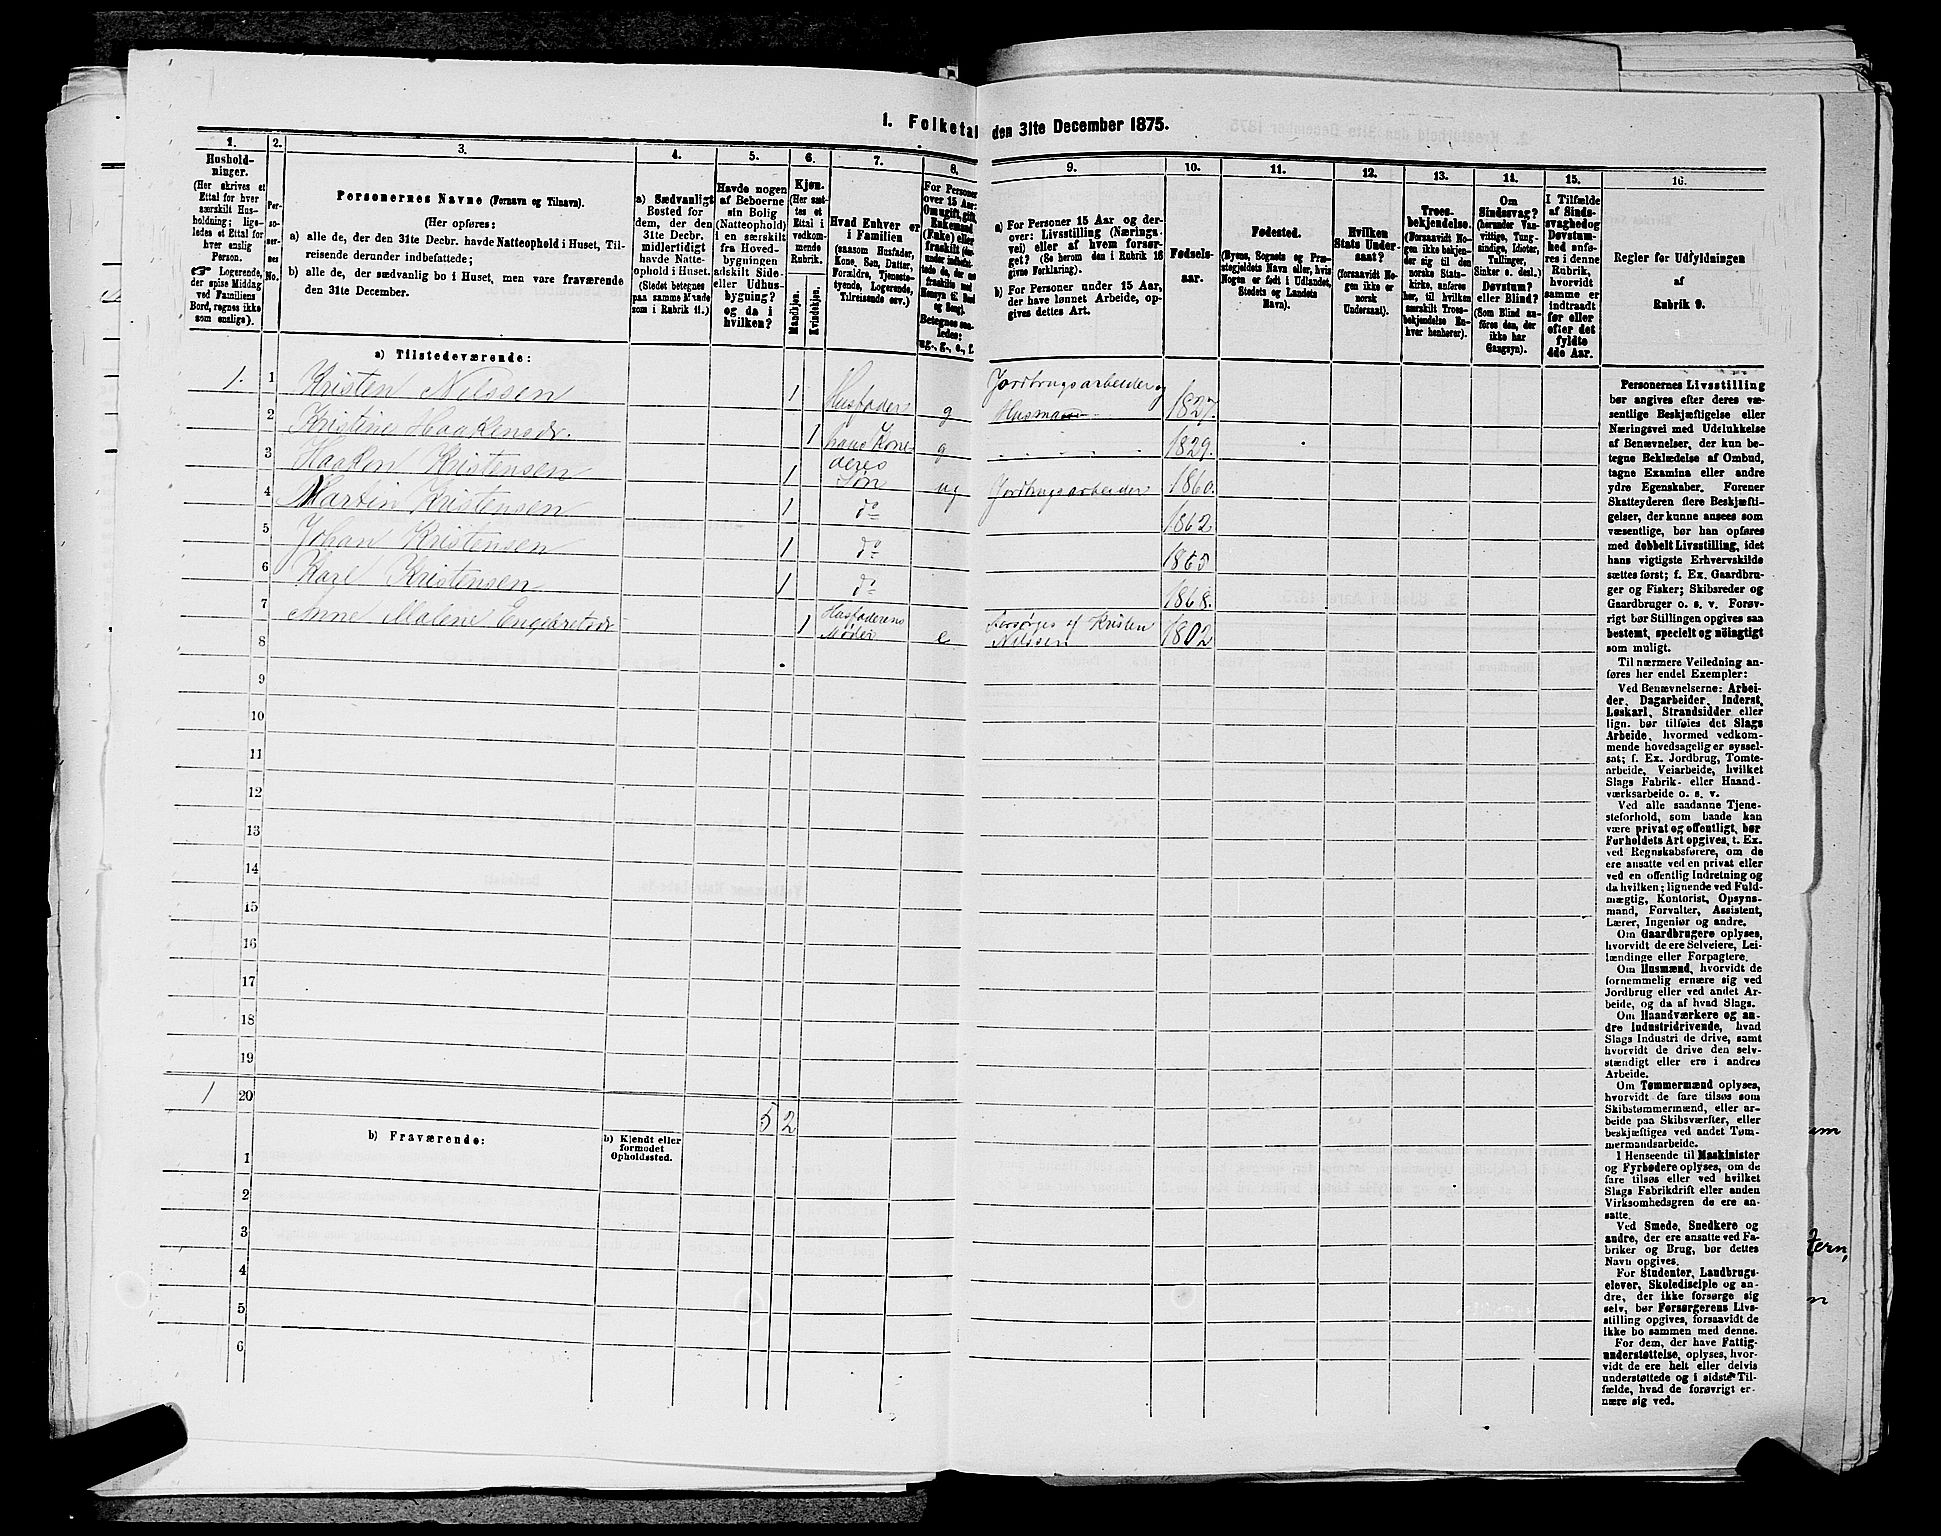 1. Folketal den 31te December 1875.
1.
2.
3.
4.
5.
6.
7.
8.
9.
10.
11.
12.
13.
14.
15.
16.
Hushold-
ninger.
(Her skrives et
Ettal for hver
særskilt Hus-
holdning; lige-
ledes et Ettal for
hver enslig
Person.
☞ Logerende,
der spise Middag
ved Familiens
Bord, regnes ikke
som enslige).
Per-
so-
ner-
nes
No.
Personernes Navne (Fornavn og Tilnavn).
(Her opføres:
a) alle de, der den 31te Decbr. havde Natteophold i Huset, Til-
reisende derunder indbefattede;
b) alle de, der sædvanlig bo i Huset, men vare fraværende
den 31te December.
a) Sædvanligt
Bosted for
dem, der den
31te Decbr.
midlertidigt
havde Natte-
ophold i Huset.
(Stedet betegnes
paa samme Maade
som i Rubrik 11.)
Havde nogen
af Beboerne
sin Bolig
(Natteophold)
i en særskilt
fra Hoved-
bygningen
adskilt Side-
eller Udhus-
bygning?
og da i
hvilken?
Kjøn.
(Her sæt-
tes et
Ettal i
vedkom-
mende
Rubrik.
Mandkjøn.
Kvindekjøn.
Hvad Enhver er
i Familien
(saasom Husfader,
Kone, Søn, Datter,
Forældre, Tjeneste-
tyende, Logerende,
Tilreisende osv.)
For Personer
over 15 Aar:
Om ugift, gift,
Enkemand
(Enke) eller
fraskilt
Betegnes saa-
ledes:
ug., g., e., f.
a) For Personer 15 Aar og der-
over: Livsstilling (Nærings-
vei) eller af hvem forsør-
get? (Se herom den i Rubrik 16
givne Forklaring).
b) For Personer under 15 Aar,
der have lønnet Arbeide, op-
gives dettes Art.
Fødsels-
aar.
Fødested.
(Byens, Sognets og Præ-
stegjeldets Navn eller, hvis
Nogen er født i Udlandet,
Stedets og Landets
Navn).
Hvilken
Stats Under-
saat?
(forsaavidt No-
gen ikke er
norsk
Undersaat).
Troes-
bekjendelse.
(Forsaavidt No-
gen ikke bekjen-
der sig til den
norske Stats-
kirke, anføres
her, til hvilken
særskilt Troes-
bekjendelse En-
hver henhører).
Om
Sindssvag?
(herunder Van-
vittige, Tung-
sindige, Idioter,
Tullinger,
Sinker o. desl.)
Døvstum?
eller Blind?
(Som Blind an-
føres den, der
ikke har
Gangsyn).
I Tilfælde
af Sinds-
svaghed og
Døvstum-
hed anfø-
res i denne
Rubrik,
hvorvidt
samme er
indtraadt
før eller
efter det
fyldte
4de Aar.
Regler for Udfyldningen
af
Rubrik 9.
a) Tilstedeværende:
1. 1 Kristen Nilssen 1 Husfader g Jordbrugsarbeider og Husmand 1827.
2 Kristine Haakensdr. 1 hans Kone g 1829.
3 Haaken Kristensen 1 deres Søn ug Jordbrugsarbeider 1860.
4 Martin Kristensen 1 do 1862
5 Johan Kristensen 1 do 1865
6 Karl Kristensen 1 do 1868.
7 Anne Malene Engebretsdr 1 Husfaderens Moder e Forsørges af Kristen Nilssen 1802
8
9
10
11
12
13
14
15
16
17
18
19
1 20 5 2
b) Fraværende:
b) Kjendt eller
formodet
Opholdssted.
1
2
3
4
5
6
Personernes Livsstilling
bør angives efter deres væ-
sentlige Beskjæftigelse eller
Næringsvei med Udelukkelse
af Benævnelser, der kun be-
tegne Beklædelse af Ombud,
tagne Examina eller andre
ydre Egenskaber. Forener
Skatteyderen flere Beskjæfti-
gelser, der kunne ansees som
væsentlige, bør han opføres
med dobbelt Livsstilling, idet
hans vigtigste Erhvervskilde
sættes først; f. Ex. Gaardbru-
ger og Fisker; Skibsreder og
Gaardbruger o. s. v. Forøv-
rigt bør Stillingen opgives saa
bestemt, specielt og nøiagtigt
som muligt.
Til nærmere Veiledning an-
føres her endel Exempler:
Ved Benævnelserne: Arbei-
der, Dagarbeider, Inderst,
Løskarl, Strandsidder eller
lign. bør tilføies det Slags
Arbeide, hvormed vedkom-
mende hovedsagelig er syssel-
sat; f. Ex. Jordbrug, Tomte-
arbeide, Veiarbeide, hvilket
Slags Fabrik- eller Haand-
værksarbeide o. s. v.
Ved alle saadanne Tjene-
steforhold, som baade kan
være privat og offentligt, bør
Forholdets Art opgives, t. Ex.
ved Regnskabsførere, om de
ere ansatte ved en privat eller
ved en offentlig Indretning og
da hvilken; lignende ved Fuld-
mægtig, Kontorist, Opsyns-
mand, Forvalter, Assistent,
Lærer, Ingeniør og andre.
Om Gaardbrugere oplyses,
hvorvidt de ere Selveiere, Lei-
lændinge eller Forpagtere.
Om Husmænd, hvorvidt de
fornemmelig ernære sig ved
Jordbrug eller ved andet Ar-
beide, og da af hvad Slags.
Om Haandværkere og an-
dre Industridrivende, hvad
Slags Industri de drive, samt
hvorvidt de drive den selv-
stændigt eller ere i andres
Arbeide.
Om Tømmermænd oplyses,
hvorvidt de fare tilsøs som
Skibstømmermænd, eller ar-
beide paa Skibsværfter, eller
beskjæftiges ved andet Tøm-
mermandsarbeide.
I Henseende til Maskinister
og Fyrbødere oplyses, om de
fare tilsøs eller ved hvilket
Slags Fabrikdrift eller anden
Virksomhedsgren de ere an-
satte.
Ved Smede, Snedkere og
andre, der ere ansatte ved Fa-
briker og Brug, bør dettes
Navn opgives.
For Studenter, Landbrugs-
elever, Skoledisciple og an-
dre, der ikke forsørge sig
selv, bør Forsørgerens Livs-
stilling opgives, forsaavidt de
ikke bo sammen med denne.
For dem, der have Fattig-
understøttelse, oplyses, hvor-
vidt de ere helt eller delvis
understøttede og i sidste Til-
fælde, hvad de forøvrigt er-
nære sig ved.